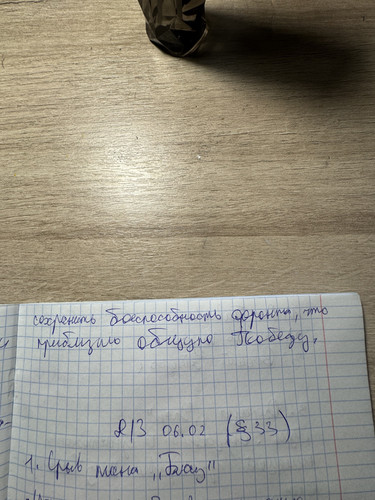 сохранить боеспособность фронта, что
приблизило общую Победу.
Д/З 06.02 (§33)
1. Срыв плана „Блау"